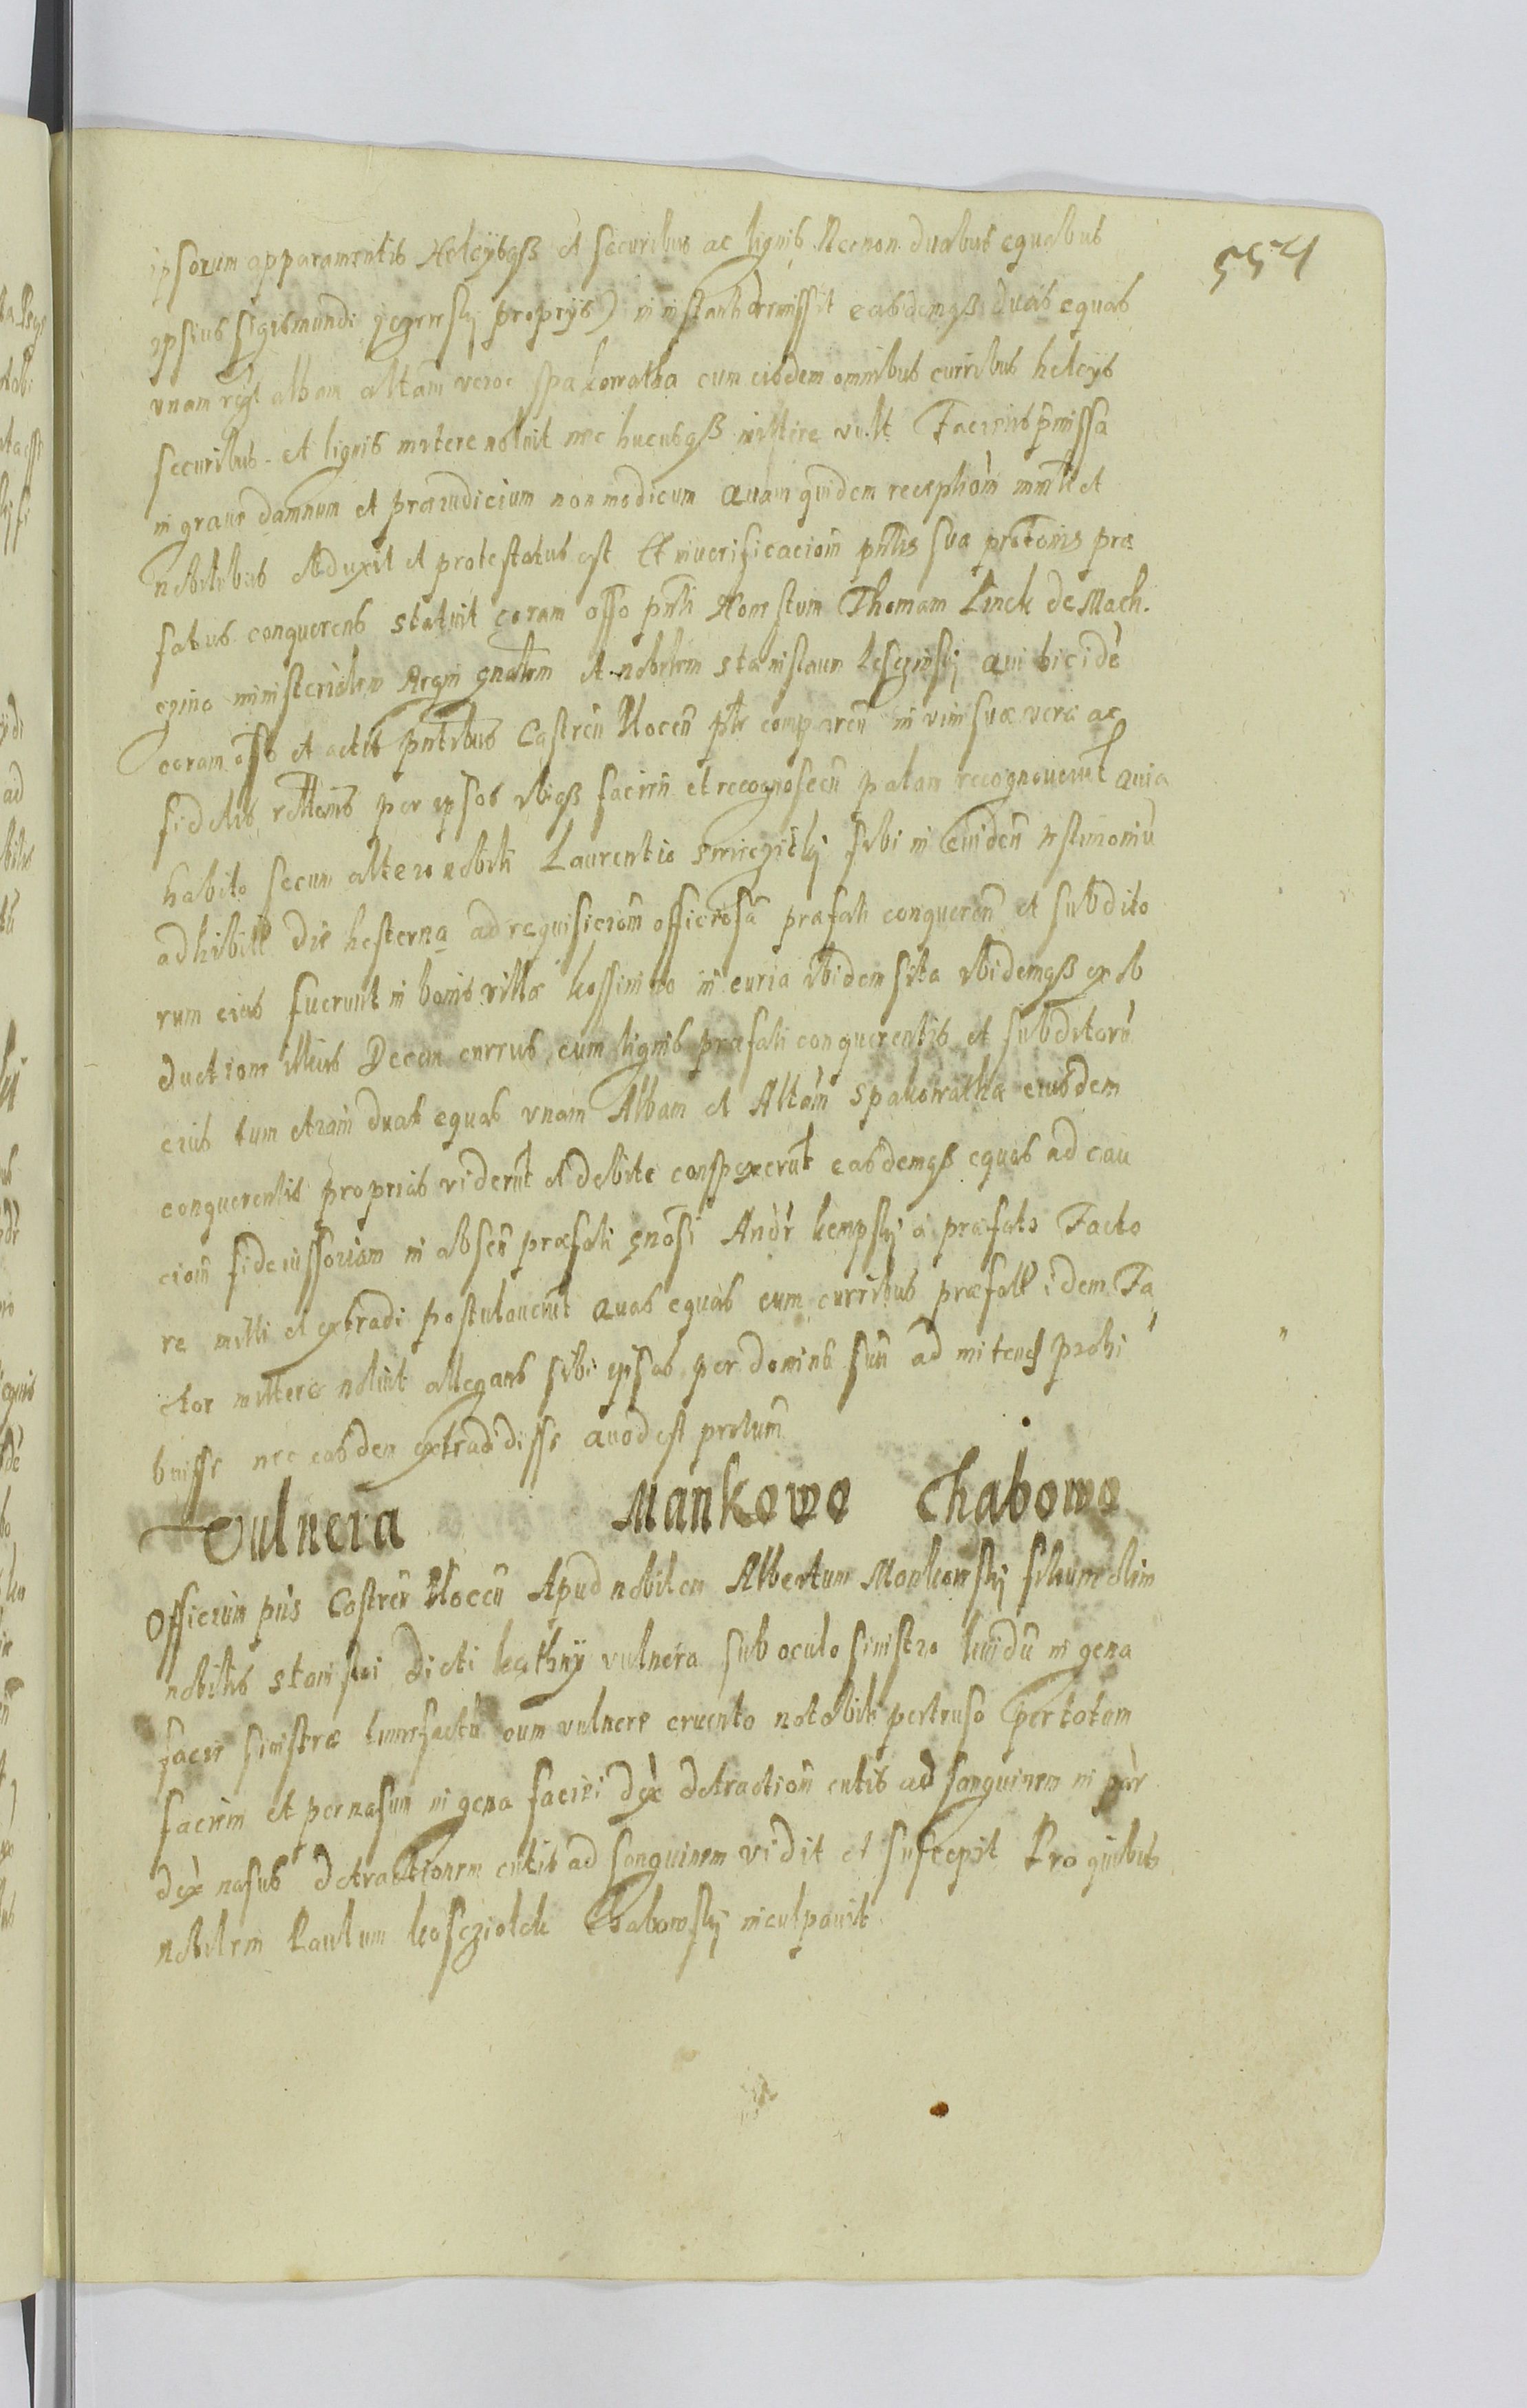 554
ipsorum apparamentis Helcysqß et securibus ac lignis Necnon duabus equabus
ipsius Sigismundi proprys) in instanti easdemqß duas equas
vnam albam altam vero spakowatha cum eisdem omnibus curribus helcys
securibus et lignis mitere noluit nec hucusqß mittere vult Faciens pmissa
in graue damnum et praeiudicium non modicum quam quidem
nobilibus obduxit et protestatus est Et in verificaciom pntis sua prae
fatus conquerens statuit coram offo pnti Honestum Thomam Linek de Mach.
czino ministerialem Regni gnalem et nobilem Stanislaum qui ibidè
coram offo et actis pntibus Castren Plocen comparen in vim suae vera ac
fidelis per ipsos vbiqß facien et recognoscen palam recognouerut quia
habito secum altero nobili Laurentio sibi in euiden testimoniu
adhibitt die hesterna ad requisiciom officiosa praefati conqueren et subdito
rum eius fuerunt in bonis villae kossinino in curia ibidem sita ibidemqß ex ob
ductione illius Decem currus cum lignis praefati conquerentis et subditorù
eius tum etiam duas equas vnam Albam et Altam spakowatha eiusdem
conquerentis proprias viderut et debite conspexerut easdemqß equas ad cau
ciom fideiussoriam in absen praefati gnosi Andr kempsky a praefato Facto
re mitti et extradi postulauerut quas equas cum curribus praefatt idem Fa
ctor mittere noluit allegans sibi ipsas per dominu suu ad mitend prohi
buisse nec easdem extraddisse quod est protum
Vulnera Mankowo Chabowo
Officium pns Castren Plocen Apud nobilem Albertum Mankowsky filium olim
nobilis Stanislai dicti kathny vulnera sub oculo sinistro liuidu in gena
faciei sinistrae tumefactu cum vulnere cruento notabili pertuso per totam
faciem et per nasum in gena faciei dex detractiom cutis ad sanguinem in par
dex nasus detractionem cutis ad sanguinem vidit et suscepit Pro quibus
nobilem Paulum koscziolek Chabowsky inculpauit